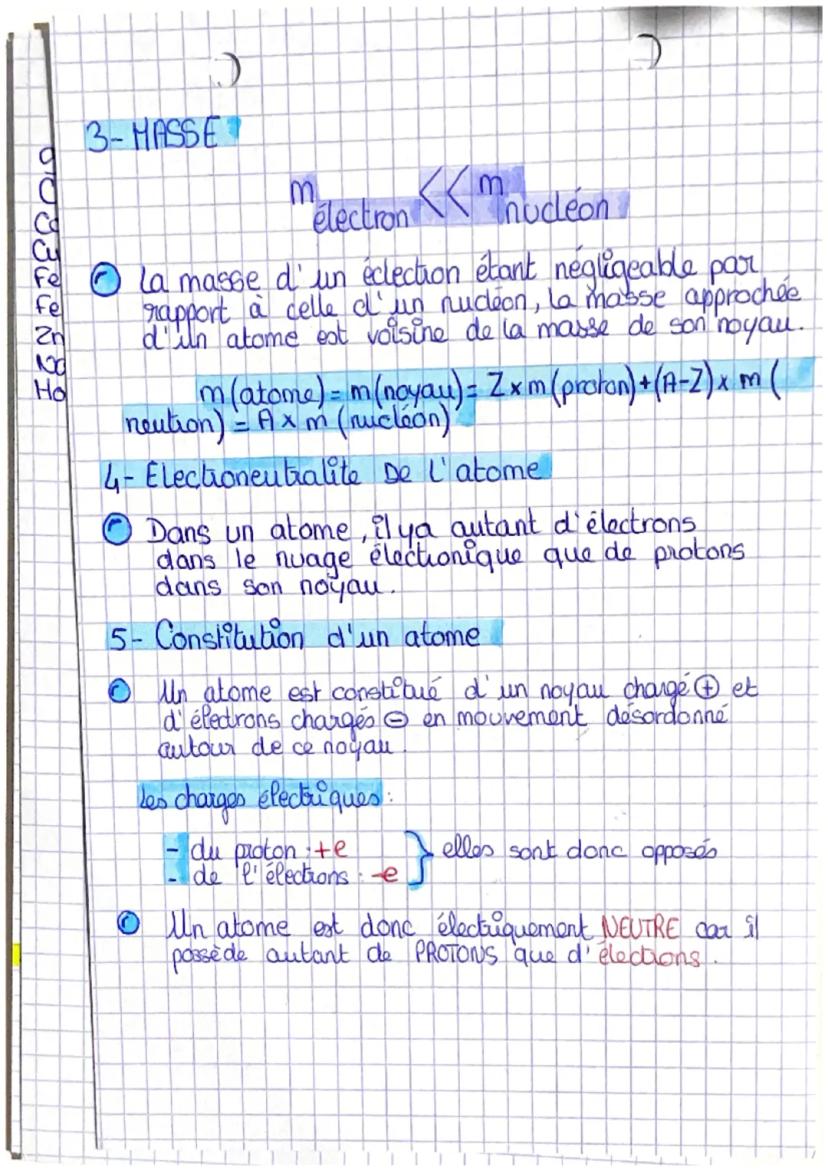 3- MASSE
m électron << m nucléon
La masse d'un éclection étant négligeable par
rapport à celle d'un nucléon, la masse approchée
d'un atome est voisine de la masse de son noyau.
m (atome) = m (noyau) = Z x m (proton) + (A-Z) x m (
neution) = A x m (nucléon)
4- Electioneutralite De L'atome
Dans un atome, il y a autant d'électrons
dans le nuage électionique que de protons
dans son noyau.
5- Constitution d'un atome
Un atome est constitué d'un noyau chargé ⊕ et
d'électrons chargés ⊖ en mouvement désordonné
autour de ce noyau.
Les charges électriques :
- du proton : +e } elles sont donc opposés
- de l'élections : -e
Un atome est donc électriquement NEUTRE car il
possède autant de PROTONS que d'élections.
Cu
Fe
Fe
Zn